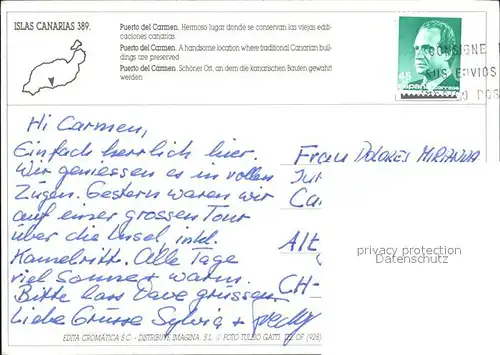 ISLAS CANARIAS 389.
Puerto del Carmen. Hermoso lugar donde se conservan las viejas edifi-
caciones canarias.
Puerto del Carmen. A handsome location where traditional Canarian buil-
dings are preserved
Puerto del Carmen. Schöner Ort, an dem die kanarischen Bauten gewahrt
werden
45
España correos
CONSIGNE
SUS ENVIOS
Hi Carmen,
Einfach herrlich hier.
Wir geniessen es in vollen
Zügen. Gestern waren wir
auf einer grossen Tour
über die Insel inkl.
Kamelritt. Alle Tage
viel Sonne + warm.
Bitte lass Dave grüssen
Liebe Grüsse Sylvia +
Frau DOLORES MIRANDA
Ca
Alt
CH-
privacy protection
Datenschutz
EDITA CROMATICA S.C. - DISTRIBUYE IMAGINA S.L. FOTO TULLIO GATTI (928)